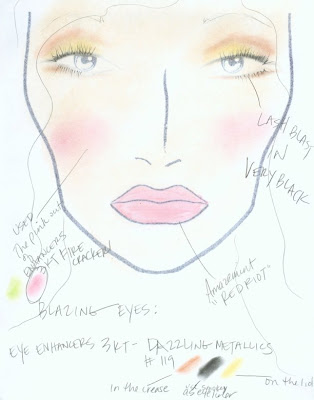 LASH BLAST
IN
VERY BLACK
USED
The pink out
of
ENHANCERS
3KT FIRE
CRACKER
Amazemint
"RED RIOT"
BLAZING EYES:
EYE ENHANCERS 3KT - DAZZLING METALLICS
#119
in the crease
as eyeliner
on the lid